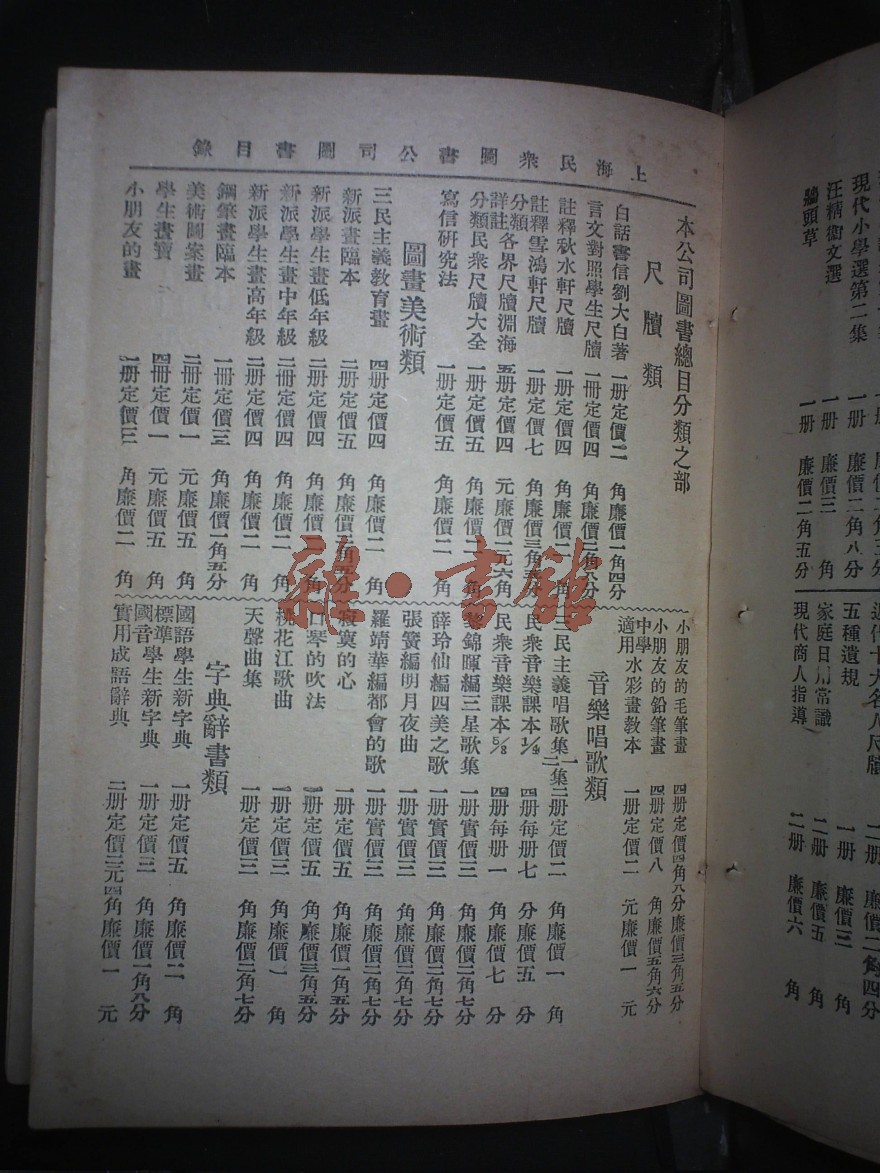 上海民衆圖書公司圖書目錄
本公司圖書總目分類之部
尺牘類
白話書信劉大白著 一册定價二角廉價一角四分
言文對照學生尺牘 一册定價四角廉價二角八分
註釋秋水軒尺牘 一册定價四角廉價二角
註釋雪鴻軒尺牘 一册定價七角廉價三角五分
分類詳註各界尺牘淵海 五册定價四元廉價二元六角
分類民衆尺牘大全 一册定價五角廉價二角
寫信研究法 一册定價五角廉價二角
圖畫美術類
三民主義教育畫 四册定價四角廉價二角
新派畫臨本 二册定價五角廉價二角五分
新派學生畫低年級 二册定價四角廉價二角
新派學生畫中年級 二册定價四角廉價二角
新派學生畫高年級 二册定價四角廉價二角
鋼筆畫臨本 一册定價三角廉價一角五分
美術圖案畫 二册定價一元廉價五角
學生畫寶 四册定價一元廉價五角
小朋友的畫 一册定價三角廉價二角
小朋友的毛筆畫 四册定價四角八分廉價三角五分
小朋友的鉛筆畫 四册定價八角廉價五角六分
中學適用水彩畫教本 一册定價二元廉價一元
音樂唱歌類
三民主義唱歌集一二集 二册定價二角廉價一角
民衆音樂課本1/4 四册每册七分廉價五分
民衆音樂課本5/8 四册每册一角廉價七分
黎錦暉編三星歌集 一册實價三角廉價二角七分
薛玲仙編四美之歌 一册實價三角廉價二角七分
張簧編明月夜曲 一册實價三角廉價二角七分
羅靖華編都會的歌 一册實價三角廉價二角七分
寂寞的心 一册定價五角廉價一角五分
口琴的吹法 一册定價五角廉價三角五分
桃花江歌曲 一册定價三角廉價一角
天聲曲集 一册定價三角廉價二角七分
字典辭書類
國語學生新字典 一册定價五角廉價二角
標準國音學生新字典 一册定價三角廉價一角八分
實用成語辭典 二册定價三元四角廉價一元
現代小學選第二集 一册 廉價二角八分
汪精衞文選 一册 廉價三角
牆頭草 一册 廉價二角五分
近代十大名人尺牘 二册 廉價二角四分
五種遺規 一册 廉價三角
家庭日用常識 二册 廉價五角
現代商人指導 二册 廉價六角
雜·書館